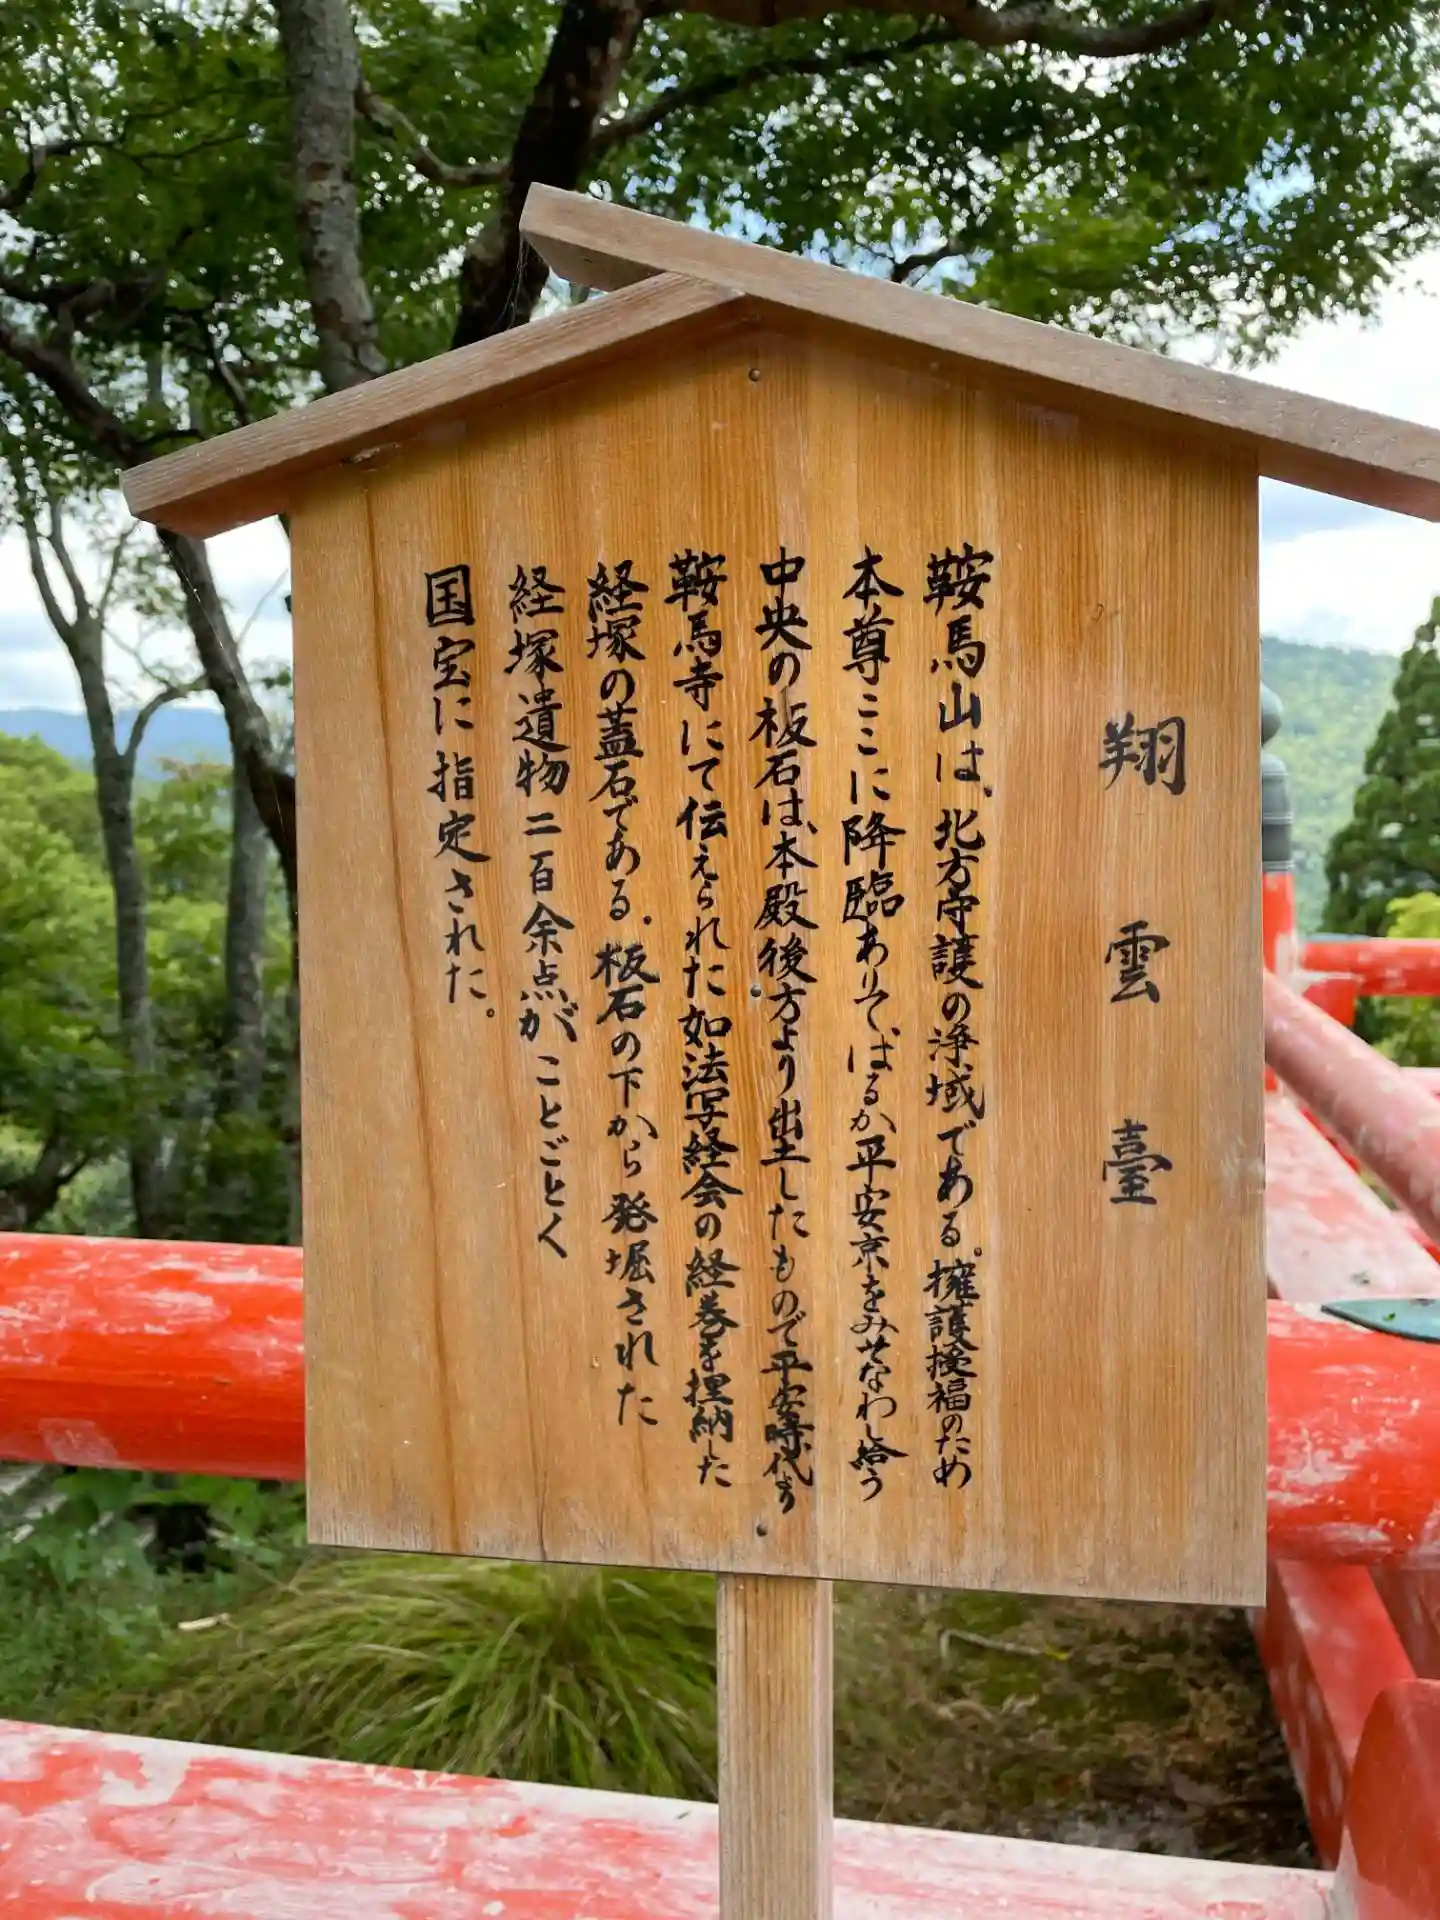 翔雲臺
鞍馬山は、北方守護の浄域である。擁護授福のため
本尊ここに降臨ありて、はるか平安京をみそなわし給う
中央の板石は、本殿後方より出土したもので平安時代より
鞍馬寺にて伝えられた如法写経会の経巻を埋納した
経塚の蓋石である。板石の下から発掘された
経塚遺物二百余点がことごとく
国宝に指定された。